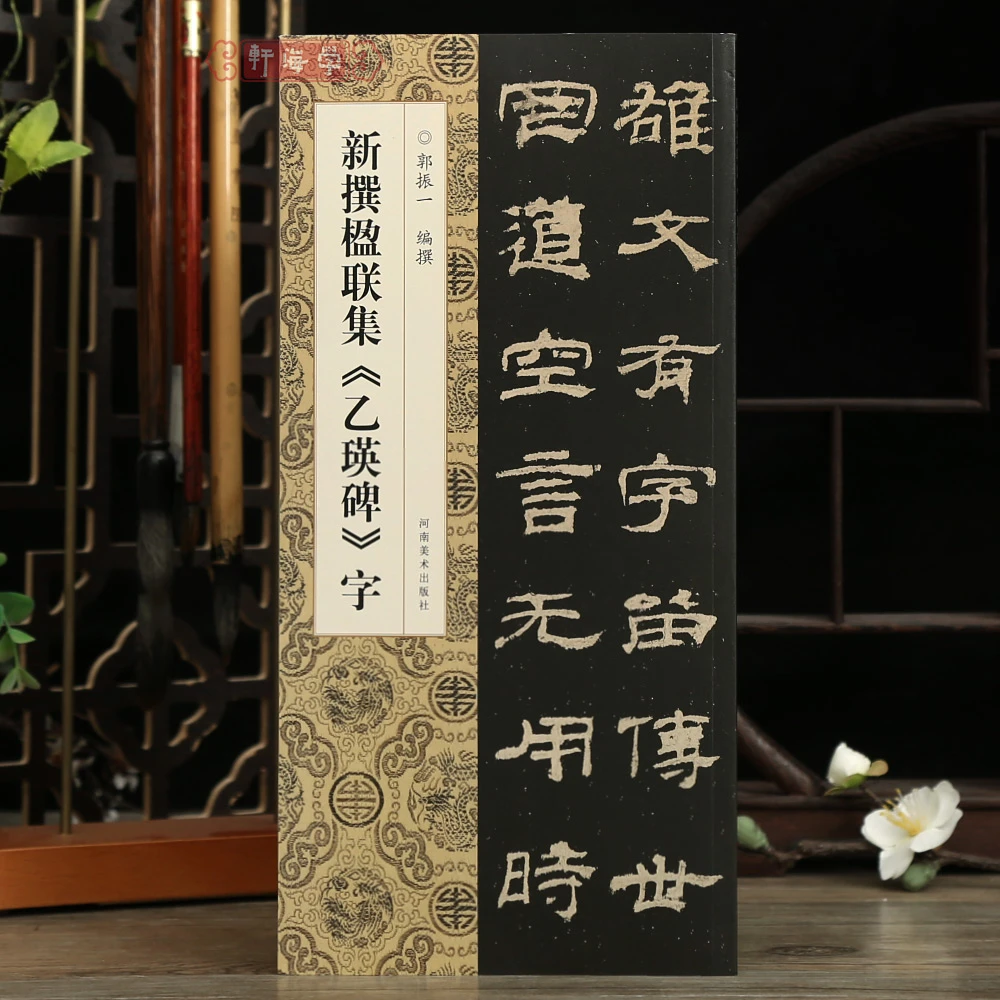 軒海
雄文有字傳世
道空言无用時
◎郭振一 编撰
河南美术出版社
新撰楹联集《乙瑛碑》字